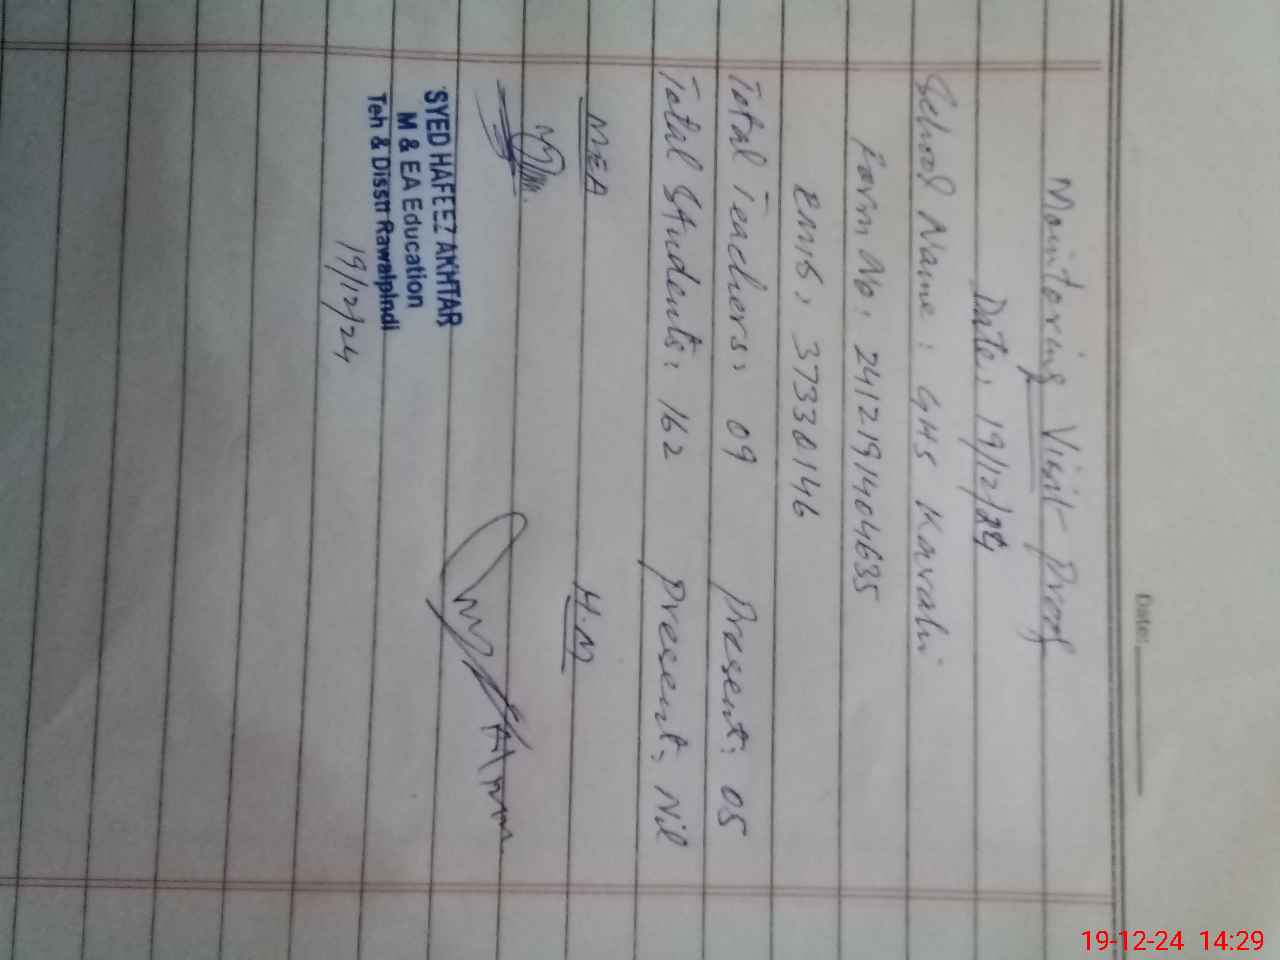 Date:
Monitoring Visit Proof
Date: 19/12/24
School Name: GHS Karahi
Form No: 2412191404635
EMIS: 37330146
Total Teachers: 09 Present: 05
Total Students: 162 Present: Nil
MEA H.M
SYED HAFEEZ AKHTAR
M & EA Education
Teh & Disstt Rawalpindi
19/12/24
19-12-24 14:29